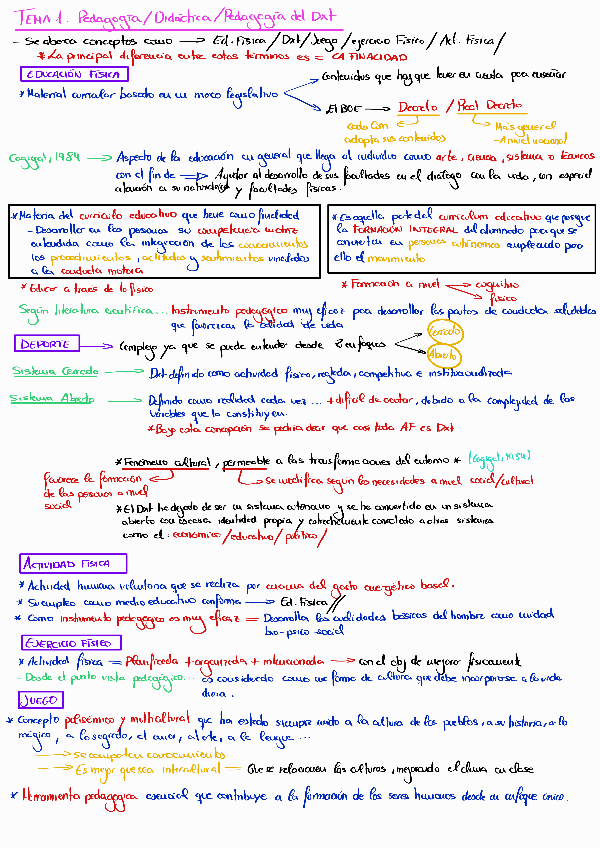 TEMA 1. Pedagogía/Didáctica/Pedagogía del Dxt
- Se aborda conceptos como → Ed. Física/Dxt/Juego/ejercicio Físico/Act. Física/
* La principal diferencia entre estos términos es = LA FINALIDAD
EDUCACIÓN FÍSICA
Contenidos que hay que llevar en cuenta para enseñar
* Material curricular basado en un marco legislativo
El BOE → Decreto / Real Decreto
cada Com adapta sus contenidos
Más general
- A nivel nacional
Cagigal, 1984 → Aspecto de la educación en general que llega al individuo como arte, ciencia, sistema o técnicas
con el fin de → Ayudar al desarrollo de sus facultades en el diálogo con la vida, con especial
atención a su naturaleza y facultades físicas.
* Materia del currículo educativo que tiene como finalidad
- Desarrollar en las personas su competencia motriz
entendida como la integración de los conocimientos
los procedimientos, actitudes y sentimientos vinculados
a la conducta motora
* Es aquella parte del currículum educativo que persigue
la FORMACIÓN INTEGRAL del alumnado para que se
conviertan en personas autónomas empleando para
ello el movimiento
* Educar a través de lo físico
* Formación a nivel → cognitivo
físico
Según literatura científica... Instrumento pedagógico muy eficaz para desarrollar las pautas de conducta saludables
que favorezcan la calidad de vida
DEPORTE → Complejo ya que se puede entender desde 2 enfoques
Cerrado
Abierto
Sistema Cerrado → Dxt definido como actividad física, reglada, competitiva e institucionalizada
Sistema Abierto → Definido como realidad cada vez ... + difícil de acotar, debido a la complejidad de las
variables que la constituyen.
* Bajo esta concepción se podría decir que casi toda AF es Dxt
* Fenómeno cultural, permeable a las transformaciones del entorno * (Cagigal, 1984)
favorece la formación
de las personas a nivel
social
→ se modifica según las necesidades a nivel social/cultural
* El Dxt ha dejado de ser un sistema autónomo y se ha convertido en un sistema
abierto con escasa identidad propia y estrechamente conectado a otros sistemas
como el: económico/educativo/político/
ACTIVIDAD FÍSICA
* Actividad humana voluntaria que se realiza por encima del gasto energético basal.
* Su empleo como medio educativo conforma → Ed. Física//
* Como instrumento pedagógico es muy eficaz = Desarrolla las cualidades básicas del hombre como unidad
bio-psico social
EJERCICIO FÍSICO
* Actividad física = Planificada + organizada + intencionada → con el obj de mejorar físicamente
- Desde el punto vista pedagógico... es considerado como una forma de cultura que debe incorporarse a la vida
diaria.
JUEGO
* Concepto polisémico y multicultural que ha estado siempre unido a la cultura de los pueblos, a su historia, a lo
mágico, a lo sagrado, el amor, al arte, a la lengua ...
→ se comparten conocimiento
→ Es mejor que sea intercultural — Que se relacionen las culturas, mejorando el clima en clase
* Herramienta pedagógica esencial que contribuye a la formación de los seres humanos desde un enfoque único.